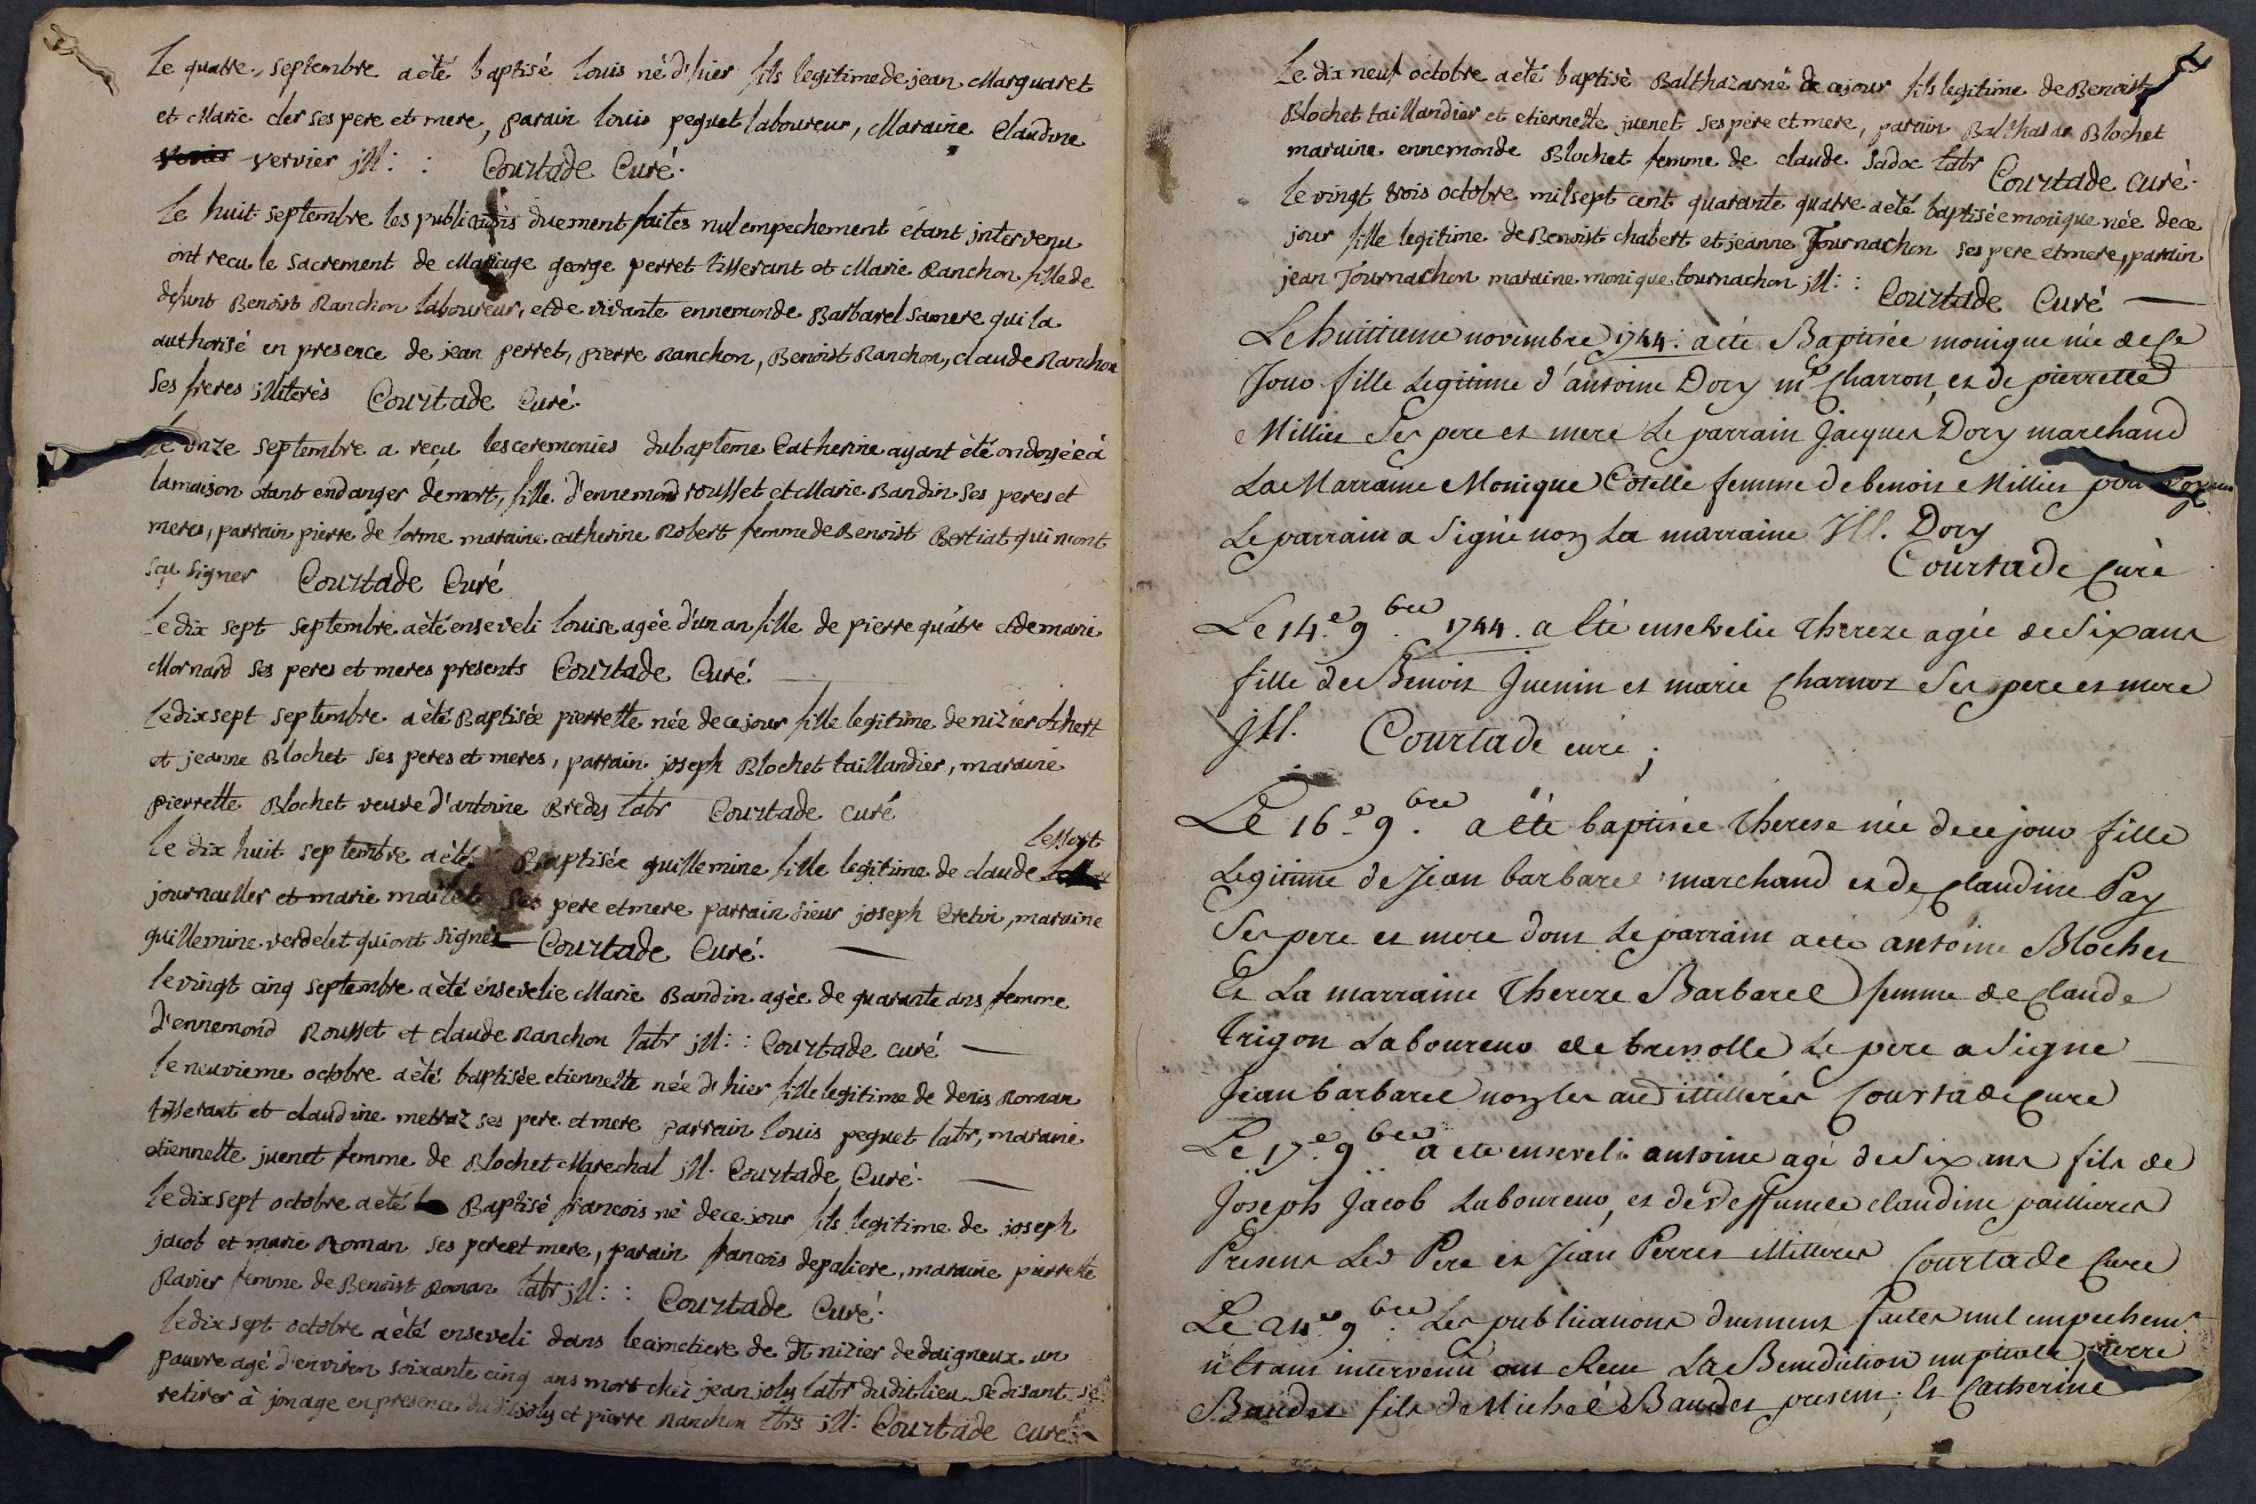 Le quatre septembre a été baptisé louis né d'hier fils legitime de jean Marguaret
et Marie cler ses pere et mere, parain louis peguet laboureur, Maraine Claudine
vervier jll: : Courtade Curé.
Le huit septembre les publications duement faites nul empechement étant jntervenu
ont recu le sacrement de Mariage george perret tisserant et Marie Ranchon fille de
defunt Benoist Ranchon laboureur, et de vivante ennemonde Barbarel sa mere qui la
authorisé en presence de jean perret, pierre Ranchon, Benoist Ranchon, claude Ranchon
ses freres jlliterés Courtade Curé.
Le onze septembre a reçu les ceremonies du baptême Catherine ayant été ondoyée à
la maison etant en danger de mort, fille d'ennemond rousset et Marie Bandin ses peres et
meres, parrain pierre de lorme maraine catherine Robert femme de Benoist Bertiat qui n'ont
sçu signer Courtade Curé
Le dix sept septembre a été enseveli louise agée d'un an fille de pierre quatre et de marie
Mornard ses peres et meres presents Courtade Curé
Le dix sept septembre a été Baptisée pierrette née de ce jour fille legitime de nizier
et jeanne Blochet ses peres et meres, parrain joseph Blochet taillandier, maraine
pierrette Blochet veuve d'antoine Bredy labr Courtade curé
Le dix huit septembre a été Baptisée guillemine fille legitime de claude
journallier et marie maillet ses pere et mere parrain sieur joseph Cretin, maraine
guillemine verdelet qui ont signés Courtade Curé.
Le vingt cinq septembre a été ensevelie Marie Bandin agée de quarante ans femme
d'ennemond Rousset et claude Ranchon labr jll: : Courtade curé
Le neuvieme octobre a été baptisée etiennette née d'hier fille legitime de denis Roman
tisserant et claudine metraz ses pere et mere parrain louis peguet labr, maraine
etiennette juenet femme de Blochet Marechal jll. Courtade Curé.
Le dix sept octobre a été Baptisé francois né de ce jour fils legitime de joseph
jacob et marie Roman ses pere et mere, parain francois depaliere, maraine pierrette
Ravier femme de Benoist Roman labr jll: : Courtade Curé.
Le dix sept octobre a été enseveli dans le cimetiere de St nizier de daigneux un
pauvre agé d'environ soixante cinq ans mort chéz jean joly labr du dit lieu se disant se
retirer à jonage en presence du dit joly et pierre Ranchon jll: Courtade curé
Le dix neuf octobre a été baptisé Balthazar né de ce jour fils legitime de Benoist
Blochet taillandier et etiennette juenet ses pere et mere, parrain Balthazar Blochet
maraine ennemonde Blochet femme de claude sadoc labr Courtade curé.
Le vingt trois octobre mil sept cent quarante quatre a été baptisée monique née de ce
jour fille legitime de Benoist chabert et jeanne Tournachon ses pere et mere, parrain
jean Tournachon maraine monique tournachon jll: : Courtade Curé
Le huittieme novembre 1744. a été Baptisée monique née de ce
Jour fille Legitime d'antoine Dory me Charron, et de pierrette
Millier Ses pere et mere Le parrain Jacques Dory marchand
La Marraine Monique Cotelle femme de benoit Millier
Le parrain a Signé non La marraine Ill. Dory
Courtade Curé
Le 14.e 9.bre 1744. a Eté ensevelie Thereze agée de Six ans
fille de Benoit Juenin et marie Charnoz Ses pere et mere
Jll. Courtade curé;
Le 16.e 9.bre a été baptisée Therese née de ce jour fille
Legitime de Jean barbarel marchand et de Claudine Pay
Ses pere et mere dont Le parrain a eté antoine Blochet
Et La marraine Thereze Barbarel femme de Claude
Trigon Laboureur de bressolle Le pere a Signe
Jean barbarel non les aud illitterés Courtade Cure
Le 17.e 9.bre a eté enseveli antoine agé de Six ans fils de
Joseph Jacob Laboureur, et de deffunte claudine pallieres
Presens Led Pere et Jean Perret illitterés Courtade Curé
Le 24.e 9.bre Les publications duement faites nul empechemt
n'étant intervenu ont Receu La Benediction nuptiale pierre
Baudet fils de Michel Baudet present, Et Catherine